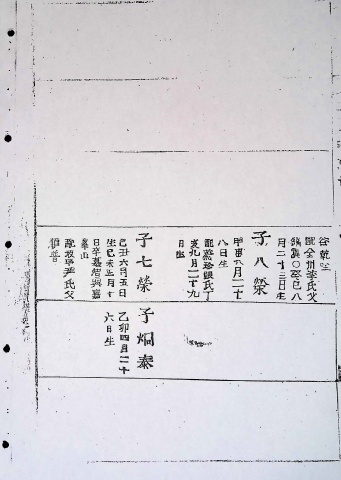 谷乾坐
配全州李氏父
錫○癸巳八
月二十三日生
子八榮
甲申八月二十
八日生
配 氏丁
亥九月二十九
日生
子七榮
己丑六月五日
生己未正月十
日卒墓智異嘉
山
配坡平尹氏父
子炯泰
乙卯四月二十
六日生